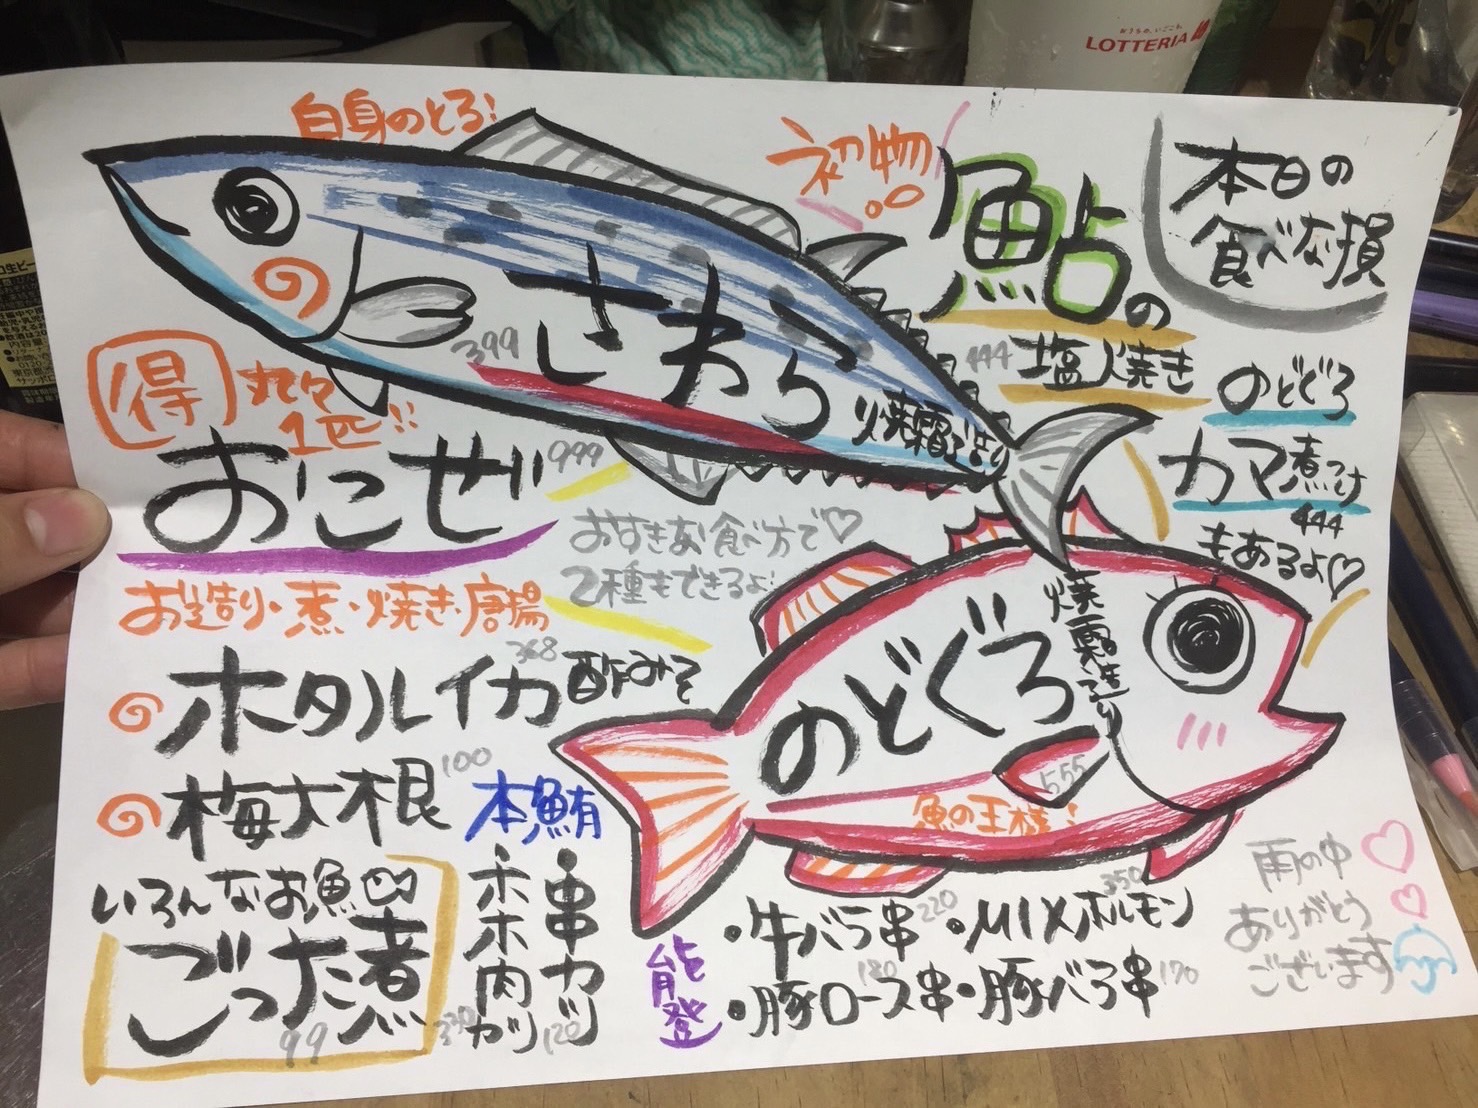 おうちの、いごこん。
LOTTERIA
本日の
食べな損
白身のとろ!
さわら
399
焼霜造り
初物
鮎の
塩焼き
444
のどぐろ
カマ煮つけ
444
もあるよ♡
得
丸々
1匹!!
おこぜ
999
おすきな食べ方で♡
2種もできるよ!
お造り・煮・焼き・唐揚
のどぐろ
焼霜造り
555
魚の王様!
ホタルイカ酢みそ
368
梅大根
100
いろんなお魚の
ごった煮
99
本鮪
・串カツ
120
・ホホ肉カツ
330
能登
・牛バラ串
220
・MIXホルモン
350
・豚ロース串
180
・豚バラ串
170
雨の中
ありがとう
ございます